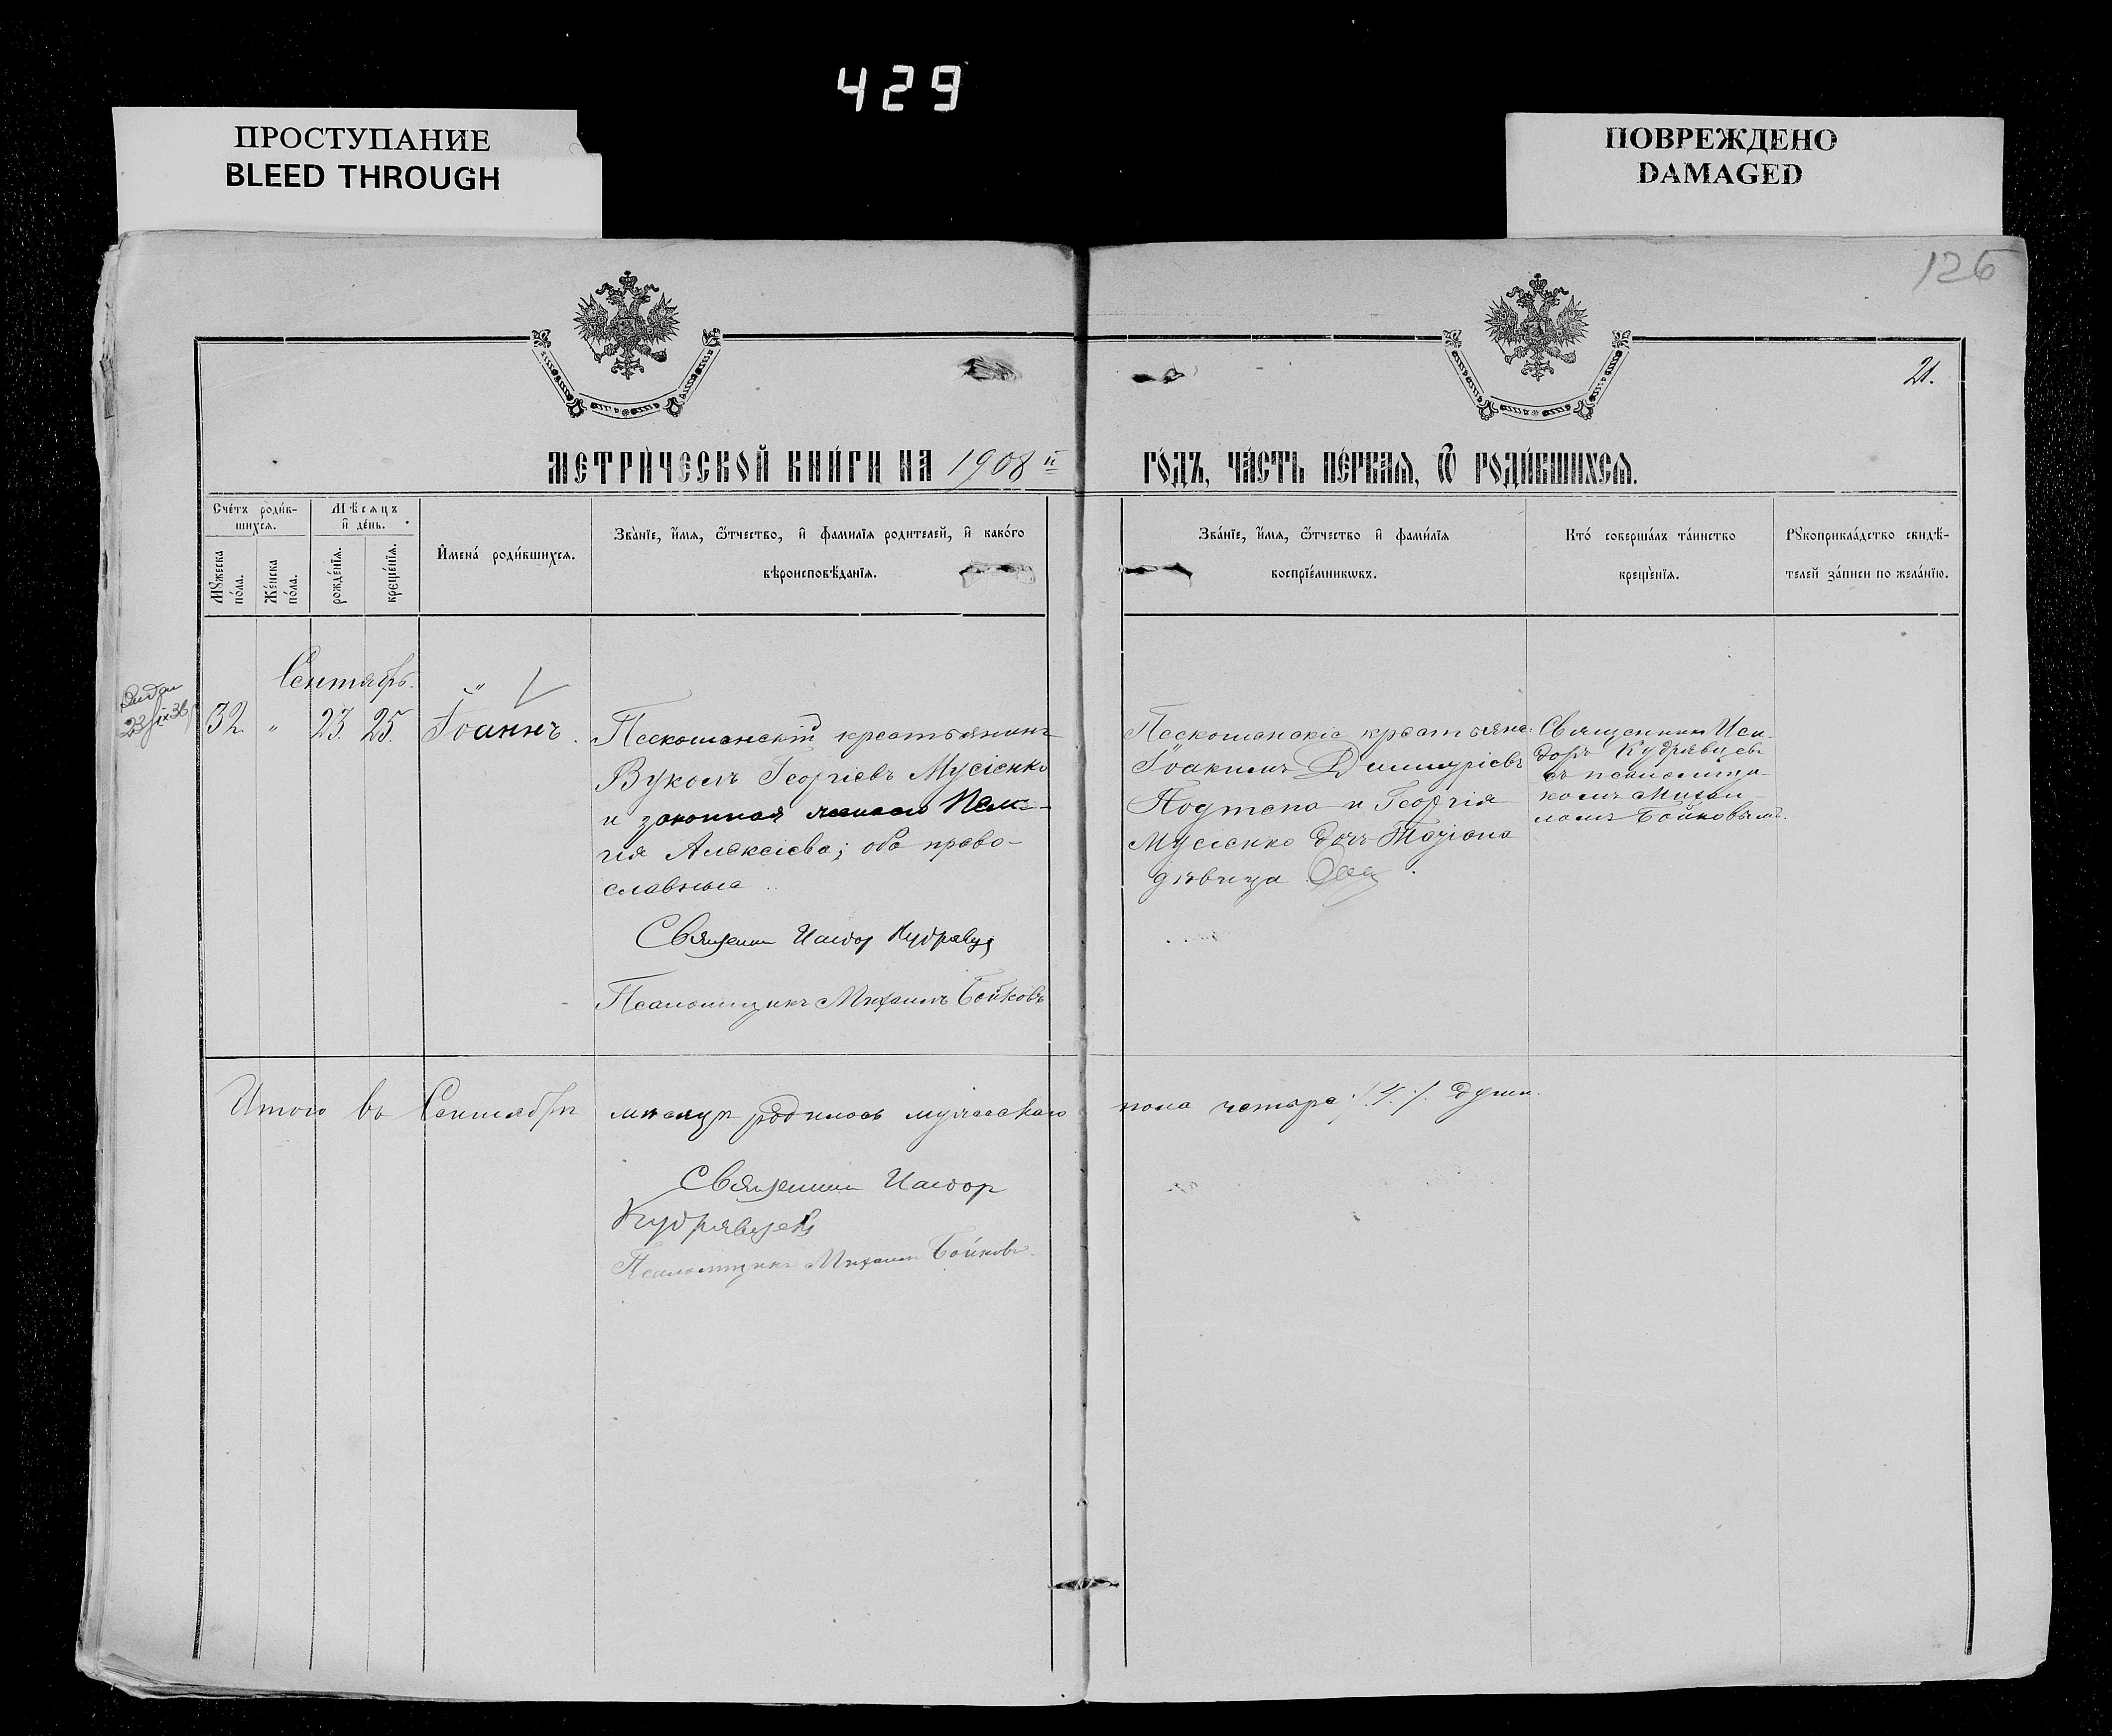 429
ПРОСТУПАНИЕ
BLEED THROUGH
ПОВРЕЖДЕНО
DAMAGED
126
21.
МЕТРИ́ЧЕСКОЙ КНИ́ГИ НА 1908 й
ГО́ДЪ, ЧА́СТЬ ПЕ́РВАѦ, Ѿ РОДИ́ВШИХСѦ.
Сче́тъ роди́в-
шихсѧ.
Мѣ́сѧцъ
и҆ де́нь.
Мꙋ́жеска
по́ла.
Же́нска
по́ла.
рожде́нїѧ.
креще́нїѧ.
И҆мена̀ роди́вшихсѧ.
Зва́нїе, и҆́мѧ, ѻ҆́тчество, и҆ фами́лїѧ роди́телей, и҆ како́гѡ
вѣроисповѣ́данїѧ.
Зва́нїе, и҆́мѧ, ѻ҆́тчество и҆ фами́лїѧ
воспрїе́мникѡвъ.
Кто́ соверша́лъ та́инство
креще́нїѧ.
Рꙋкоприкла́дство свидѣ́-
телей за́писи по жела́нїю.
Сентябрь.
32. " 23. 25. Іоаннъ.
Пескошанскій крестьянинъ
Вуколъ Георгіевъ Мусіенко
и законная жена его Пела-
гія Алексіева; оба право-
славные
Священник Исидор Кудрявцев
Псаломщикъ Михаилъ Бойковъ
Пескошанскіе крестьяне:
Іоакимъ Димитріевъ
и Георгія
Мусіенко дочь Татіана
дѣвица
Священник Иси-
доръ Кудрявцевъ
съ псаломщи-
комъ Михаи-
ломъ Бойковымъ.
Итого въ Сентябрѣ мѣсяцѣ родилось мужескаго пола четыре /.4./. души.
Священник Исидор
Кудрявцев
Псаломщикъ Михаилъ Бойковъ